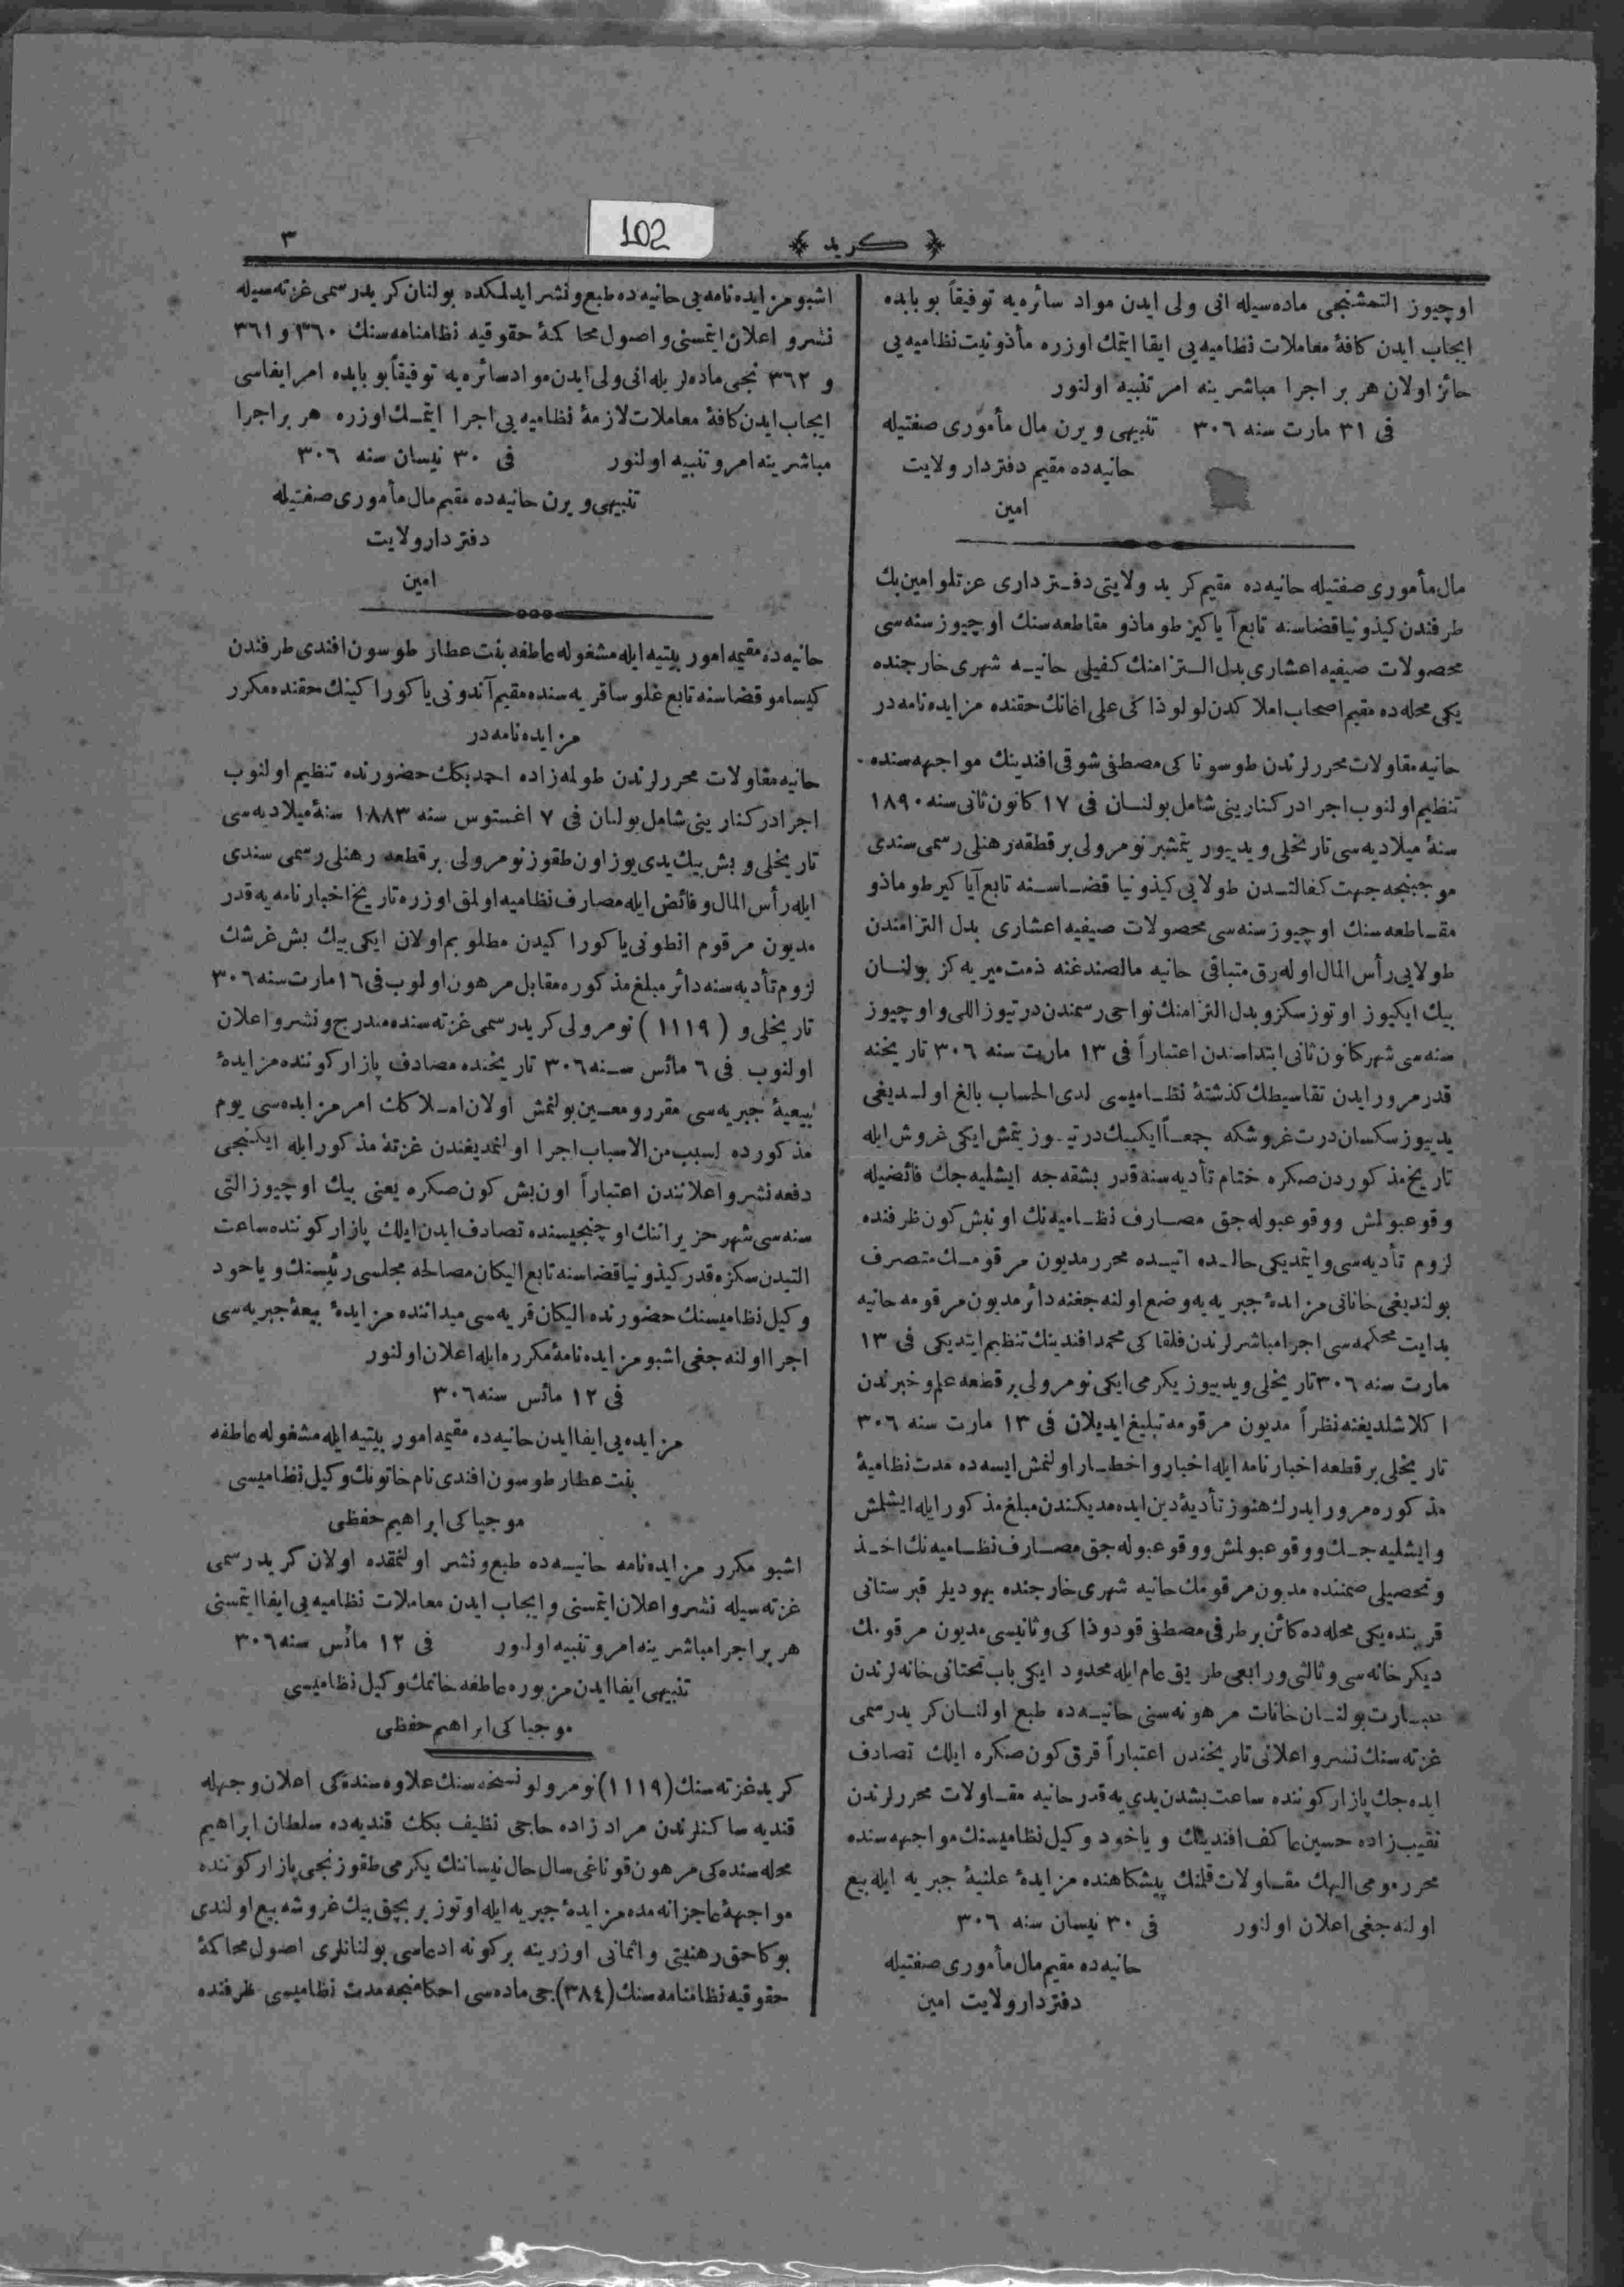 ٣
102
﴿ كريد ﴾
اوچيوز التمشنجى ماده‌سيله انى ولى ايدن مواد سائره‌يه توفيقاً بو بابده
ايجاب ايدن كافهٔ معاملات نظاميه‌يى ايفا ايتمك اوزره مأذونيت نظاميه‌يى
حائز اولان هر بر اجرا مباشرينه امر تنبيه اولنور
فى ٣١ مارت سنه ٣٠٦ تنبيهى ويرن مال مأمورى صفتيله
حانيه‌ده مقيم دفتردار ولايت
امين
مال مأمورى صفتيله حانيه‌ده مقيم كريد ولايتى دفتردارى عزتلو امين بك
طرفندن كيذونيا قضاسنه تابع آياكيز طوماذو مقاطعه‌سنك اوچيوز سنه‌سى
محصولات صيفيه اعشارى بدل التزامنك كفيلى حانيه شهرى خارجنده
يكى محله‌ده مقيم اصحاب املاكدن لولوذاكى على اغانك حقنده مزايده‌نامه‌در
حانيه مقاولات محررلرندن طوسوناكى مصطفى شوقى افندينك مواجهه‌سنده
تنظيم اولنوب اجرا دركنارينى شامل بولنان فى ١٧ كانون ثانى سنه ١٨٩٠
سنهٔ ميلاديه‌سى تاريخلى ويديوز يتمشبر نومرولى بر قطعه رهنلى رسمى سندى
موجبنجه جهت كفالتدن طولايى كيذونيا قضاسنه تابع آياكيز طوماذو
مقاطعه‌سنك اوچيوز سنه‌سى محصولات صيفيه اعشارى بدل التزامندن
طولايى رأس المال اوله‌رق متباقى حانيه مالصندغنه ذمت ميريه‌كز بولنان
بيك ايكيوز اوتوز سكز و بدل التزامنك نواحى رسمندن درتيوز اللى و اوچيوز
سنه‌سى شهر كانون ثانى ابتداسندن اعتباراً فى ١٣ مارت سنه ٣٠٦ تاريخنه
قدر مرور ايدن تقاسيطك كذشتهٔ نظاميسى لدى الحساب بالغ اولديغى
يديوز سكسان درت غروشكه جمعاً ايكيبيك درتيوز يتمش ايكى غروش ايله
تاريخ مذكوردن صكره ختام تأديه‌سنه قدر بشقه‌جه ايشليه‌جك فائضيله
وقوعبولمش ووقوعبوله‌جق مصارف نظاميه‌نك اونبش كون ظرفنده
لزوم تأديه‌سى وايتمديكى حالده اتيده محرر مديون مرقومك متصرف
بولنديغى خاناتى مزايدهٔ جبريه‌يه وضع اولنه‌جغنه دائر مديون مرقومه حانيه
بدايت محكمه‌سى اجرا مباشرلرندن فلقاكى محمد افندينك تنظيم ايتديكى فى ١٣
مارت سنه ٣٠٦ تاريخلى ويديوز يكرمى ايكى نومرولى بر قطعه علم و خبرندن
اكلاشلديغنه نظراً مديون مرقومه تبليغ ايديلان فى ١٣ مارت سنه ٣٠٦
تاريخلى بر قطعه اخبارنامه ايله اخبار و اخطار اولنمش ايسه‌ده مدت نظاميهٔ
مذكوره مرور ايدرك هنوز تأديهٔ دين ايده‌مديكندن مبلغ مذكور ايله ايشلمش
وايشليه‌جك ووقوعبولمش ووقوعبوله‌جق مصارف نظاميه‌نك اخذ
وتحصيلى ضمننده مديون مرقومك حانيه شهرى خارجنده يهوديلر قبرستانى
قربنده يكى محله‌ده كائن بر طرفى مصطفى قودوذاكى وثانيسى مديون مرقومك
ديكر خانه‌سى وثالثى ورابعى طريق عام ايله محدود ايكى باب تحتانى خانه‌لرندن
عبارت بولنان خانات مرهونه‌سنى حانيه‌ده طبع اولنان كريد رسمى
غزته‌سنك نشر واعلانى تاريخندن اعتباراً قرق كون صكره ايلك تصادف
ايده‌جك پازار كوننده ساعت بشدن يدى‌يه قدر حانيه مقاولات محررلرندن
نقيب زاده حسين عاكف افندينك وياخود وكيل نظاميسنك مواجهه‌سنده
محرر مومى اليهك مقاولات قلمنك پيشكاهنده مزايدهٔ علنيهٔ جبريه ايله بيع
اولنه‌جغى اعلان اولنور فى ٣٠ نيسان سنه ٣٠٦
حانيه‌ده مقيم مال مأمورى صفتيله
دفتردار ولايت امين
اشبو مزايده‌نامه‌يى حانيه‌ده طبع ونشر ايدلمكده بولنان كريد رسمى غزته‌سيله
نشر و اعلان ايتمسنى و اصول محاكمهٔ حقوقيه نظامنامه‌سنك ٣٦٠ و ٣٦١
و ٣٦٢ نجى ماده‌لريله انى ولى ايدن مواد سائره‌يه توفيقاً بو بابده امر ايفاسى
ايجاب ايدن كافهٔ معاملات لازمهٔ نظاميه‌يى اجرا ايتمك اوزره هر بر اجرا
مباشرينه امر و تنبيه اولنور فى ٣٠ نيسان سنه ٣٠٦
تنبيهى ويرن حانيه‌ده مقيم مال مأمورى صفتيله
دفتردار ولايت
امين
حانيه‌ده مقيمه امور بيتيه ايله مشغوله عاطفه بنت عطار طوسون افندى طرفندن
كيسامو قضاسنه تابع غلوساقريه‌سنده مقيم آندونى ياكوراكينك حقنده مكرر
مزايده‌نامه‌در
حانيه مقاولات محررلرندن طولمه‌زاده احمد بكك حضورنده تنظيم اولنوب
اجرا دركنارينى شامل بولنان فى ٧ اغستوس سنه ١٨٨٣ سنهٔ ميلاديه‌سى
تاريخلى و بش بيك يدى يوز اون طقوز نومرولى بر قطعه رهنلى رسمى سندى
ايله رأس المال و فائض ايله مصارف نظاميه اولمق اوزره تاريخ اخبارنامه‌يه قدر
مديون مرقوم انطونى ياكوراكيدن مطلوبم اولان ايكى بيك بش غرشك
لزوم تأديه‌سنه دائر مبلغ مذكوره مقابل مرهون اولوب فى ١٦ مارت سنه ٣٠٦
تاريخلى و ( ١١١٩ ) نومرولى كريد رسمى غزته‌سنده مندرج و نشر و اعلان
اولنوب فى ٦ مائس سنه ٣٠٦ تاريخنده مصادف پازار كوننده مزايدهٔ
بيعيهٔ جبريه‌سى مقرر و معين بولنمش اولان املاكك امر مزايده‌سى يوم
مذكورده لسبب من الاسباب اجرا اولنمديغندن غزتهٔ مذكور ايله ايكنجى
دفعه نشر و اعلانندن اعتباراً اون بش كون صكره يعنى بيك اوچيوز التى
سنه‌سى شهر حزيراننك اوچنجيسنده تصادف ايدن ايلك پازار كوننده ساعت
التيدن سكزه قدر كيذونيا قضاسنه تابع اليكان مصالحه مجلسى رئيسنك و ياخود
وكيل نظاميسنك حضورنده اليكان قريه‌سى ميداننده مزايدهٔ بيعهٔ جبريه‌سى
اجرا اولنه‌جغى اشبو مزايده‌نامهٔ مكرره ايله اعلان اولنور
فى ١٢ مائس سنه ٣٠٦
مزايده‌يى ايفا ايدن حانيه‌ده مقيمه امور بيتيه ايله مشغوله عاطفه
بنت عطار طوسون افندى نام خاتونك وكيل نظاميسى
موجياكى ابراهيم حفظى
اشبو مكرر مزايده‌نامه حانيه‌ده طبع و نشر اولنمقده اولان كريد رسمى
غزته‌سيله نشر و اعلان ايتمسنى و ايجاب ايدن معاملات نظاميه‌يى ايفا ايتمسنى
هر بر اجرا مباشرينه امر و تنبيه اولنور فى ١٢ مائس سنه ٣٠٦
تنبيهى ايفا ايدن مزبوره عاطفه خانمك وكيل نظاميسى
موجياكى ابراهيم حفظى
كريد غزته‌سنك (١١١٩) نومرولو نسخه‌سنك علاوه‌سنده‌كى اعلان وجهله
قنديه ساكنلرندن مراد زاده حاجى نظيف بكك قنديه‌ده سلطان ابراهيم
محله‌سنده‌كى مرهون قوناغى سال حال نيساننك يكرمى طقوزنجى پازار كوننده
مواجههٔ عاجزانه‌مده مزايدهٔ جبريه ايله اوتوز بر بچق بيك غروشه بيع اولندى
بوكا حق رهنيتى و اثمانى اوزرينه بركونه ادعاسى بولنانلرى اصول محاكمهٔ
حقوقيه نظامنامه‌سنك (٣٨٤) جى ماده‌سى احكامنجه مدت نظاميسى ظرفنده